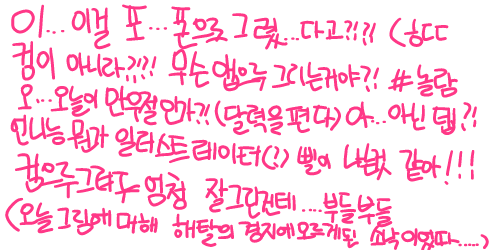 이... 이걸 포... 폰으로 그렸...다고?!?! (ㅎㄷㄷ
컴이 아니라?!?! 무슨 앱으루 그리는거야?! #놀람
오...오늘이 만우절인가?! (달력을 편다) 아...아닌뎁?!
언니능 뭔가 일러스트레이터(?) 삘이 나넜 같아!!!
컴으루그려두 엄청 잘그린건테....부들부들
(오늘 그림에 대해 해탈의 경지에오르게된 쇠낙이었따.....)